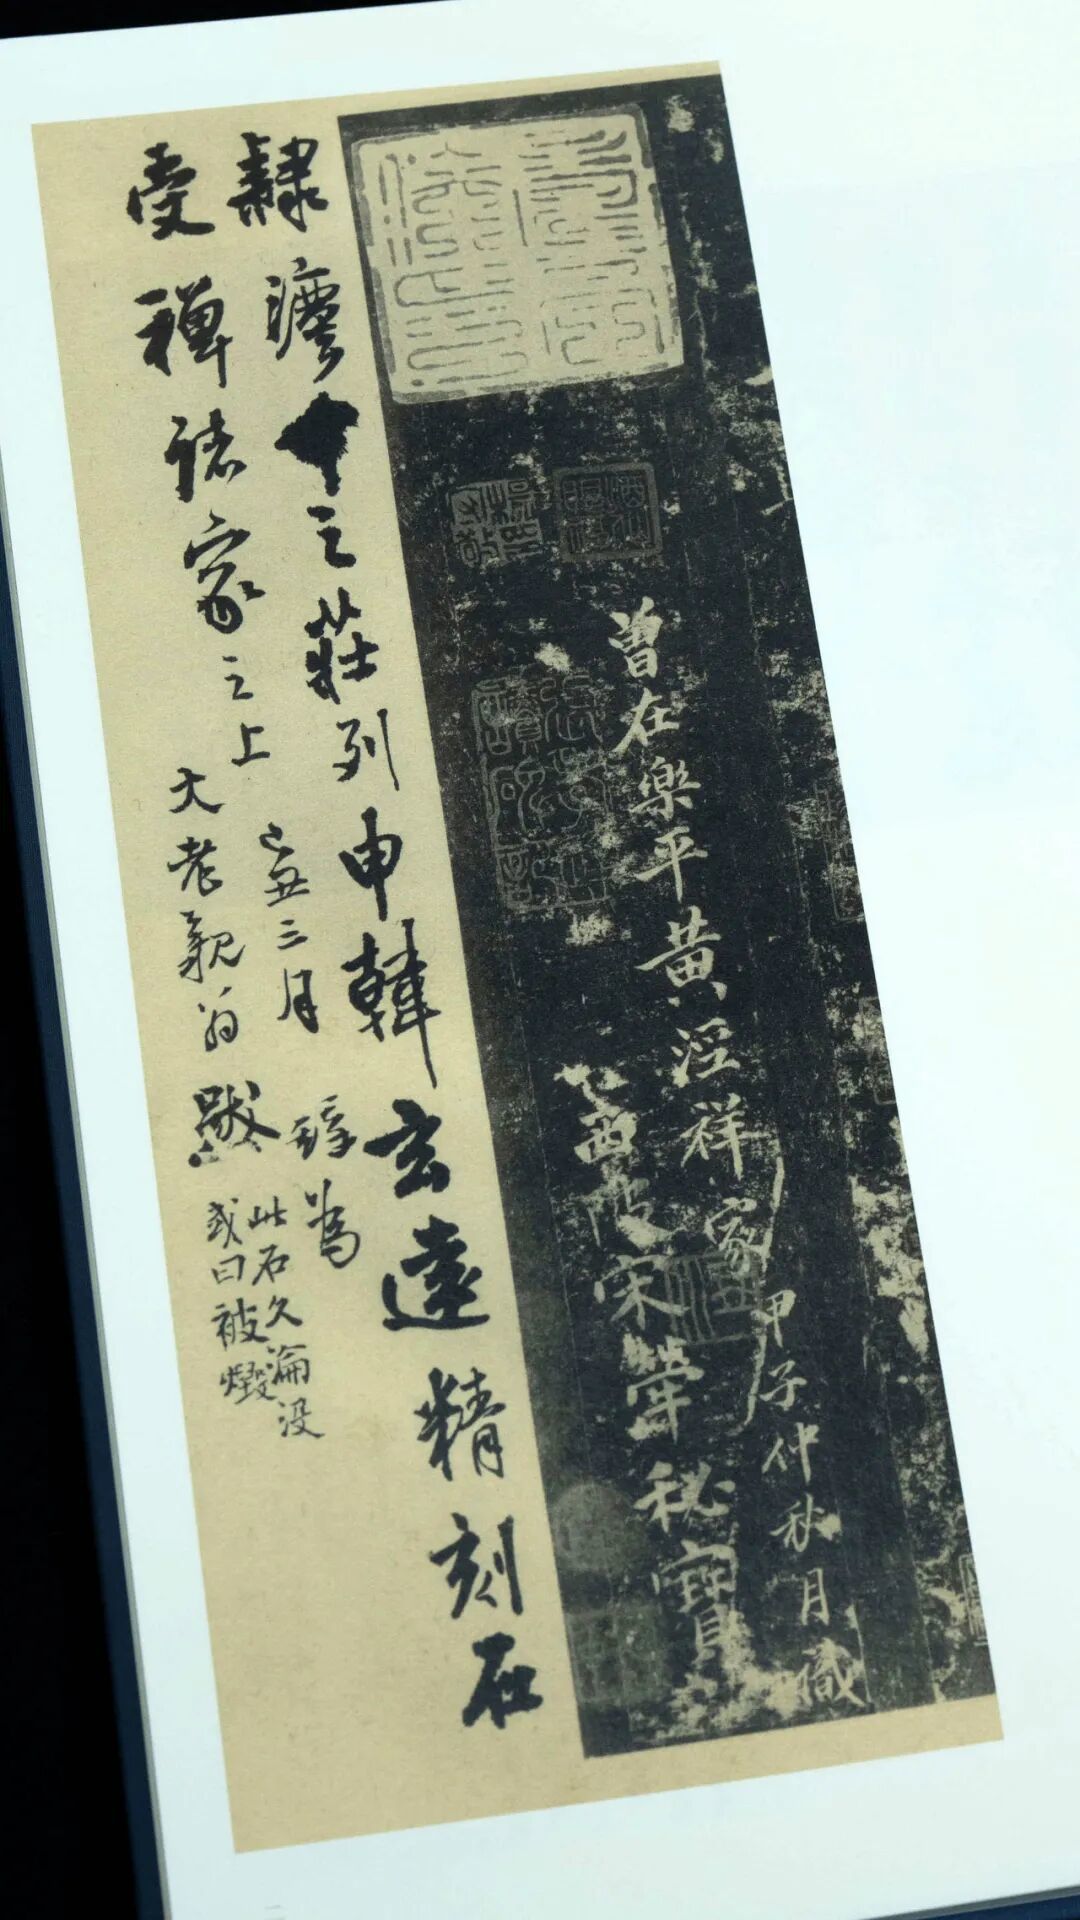 曾在樂平黃涇祥家
甲子仲秋月識
西陂宋犖秘寶
隸灋中之莊列申韓玄遠精刻在
受禪諸家之上
己丑三月 鐸為
大老親翁跋
此石久淪没
或曰被燬